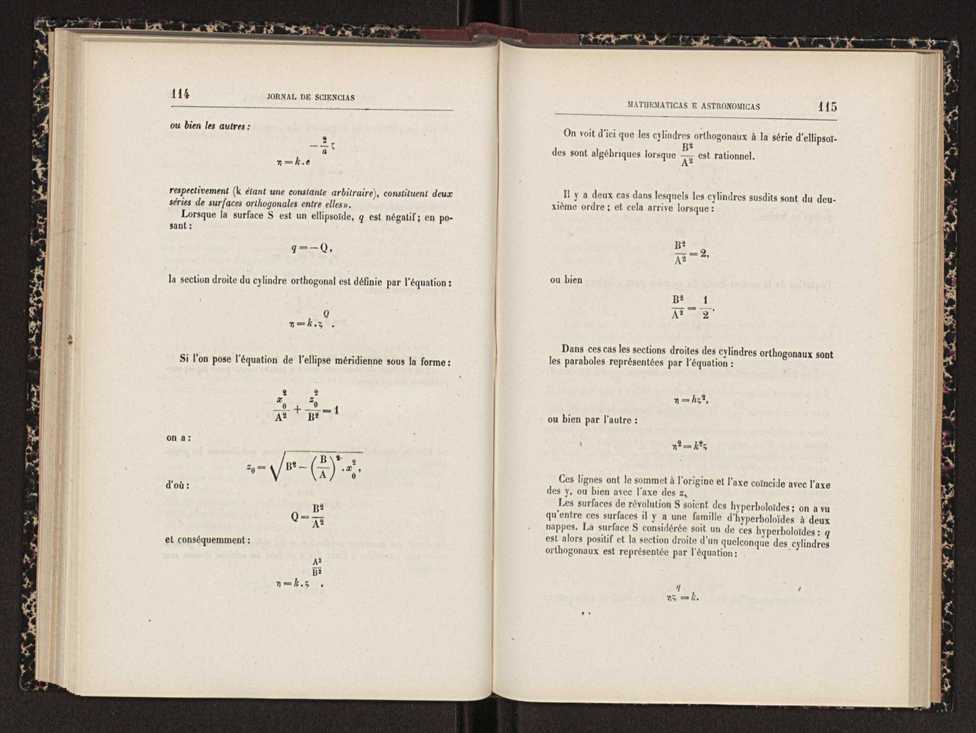 114 JORNAL DE SCIENCIAS
ou bien les autres :
η = k . e^{− 2/a ζ}
respectivement (k étant une constante arbitraire), constituent deux
séries de surfaces orthogonales entre elles».
Lorsque la surface S est un ellipsoïde, q est négatif; en po-
sant :
q = — Q,
la section droite du cylindre orthogonal est définie par l'équation :
η = k . ζ^Q .
Si l'on pose l'équation de l'ellipse méridienne sous la forme :
x₀²/A² + z₀²/B² = 1
on a :
z₀ = √(B² — (B/A)² . x₀²),
d'où :
Q = B²/A²
et conséquemment :
η = k . ζ^{A²/B²} .
MATHEMATICAS E ASTRONOMICAS 115
On voit d'ici que les cylindres orthogonaux à la série d'ellipsoï-
des sont algébriques lorsque B²/A² est rationnel.
Il y a deux cas dans lesquels les cylindres susdits sont du deu-
xième ordre ; et cela arrive lorsque :
B²/A² = 2,
ou bien
B²/A² = 1/2 .
Dans ces cas les sections droites des cylindres orthogonaux sont
les paraboles représentées par l'équation :
η = kζ²,
ou bien par l'autre :
η² = k²ζ
Ces lignes ont le sommet à l'origine et l'axe coïncide avec l'axe
des y, ou bien avec l'axe des z.
Les surfaces de révolution S soient des hyperboloïdes ; on a vu
qu'entre ces surfaces il y a une famille d'hyperboloïdes à deux
nappes. La surface S considérée soit un de ces hyperboloïdes : q
est alors positif et la section droite d'un quelconque des cylindres
orthogonaux est représentée par l'équation :
ηζ^q = k.